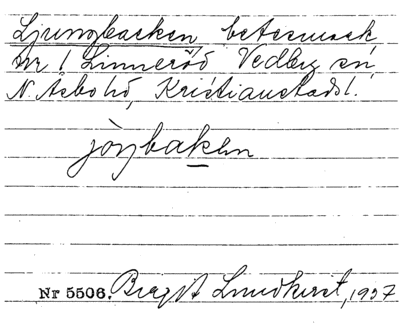 Ljungbacken, betesmark
nr 1 Linneröd Vedby sn,
N. Åsbo hd, Kristianstads l.
jòŋbakən
Nr 5506. Birgit Lundkvist, 1937